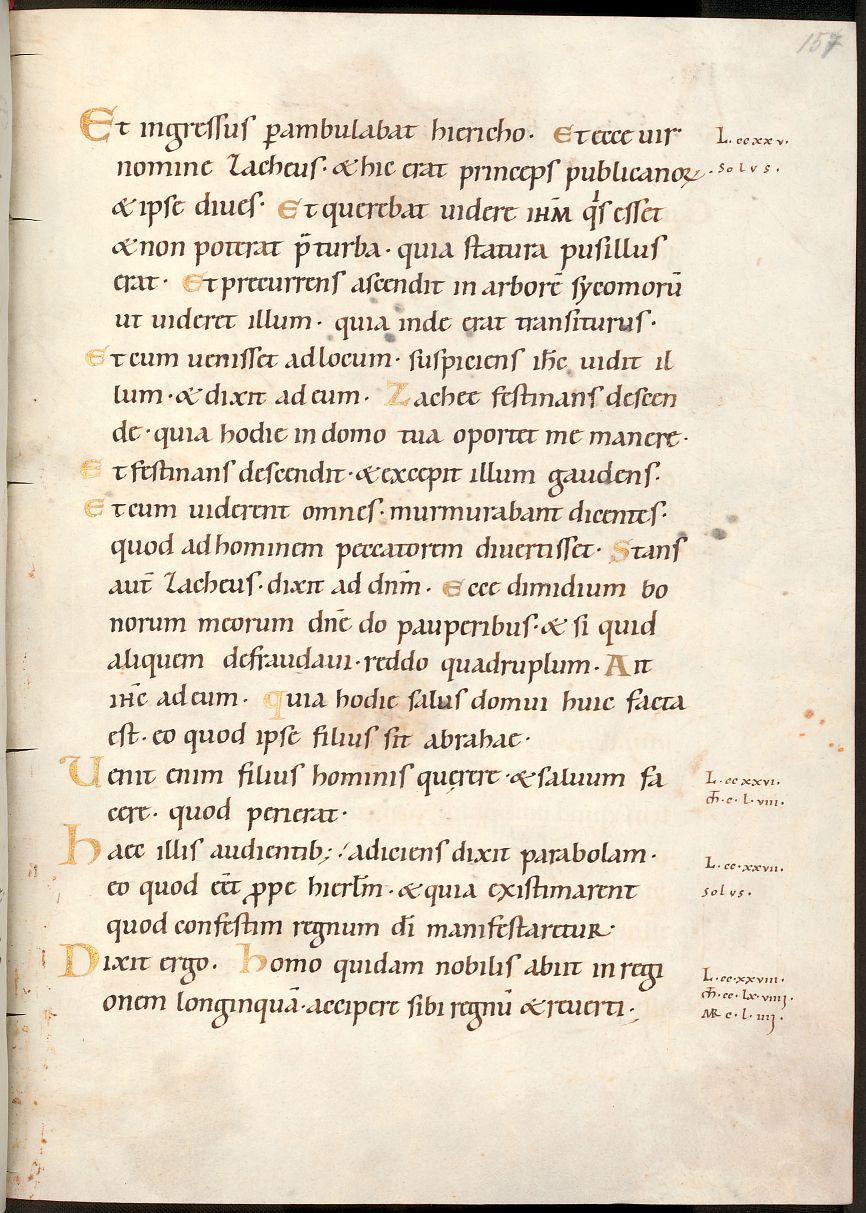 157
Et ingressus p̲ambulabat hiericho. Et ecce uir
L. ccxxv.
nomine Zacheus. & hic erat princeps publicanoꝝ.
solvs.
& ipse diues. Et querebat uidere ihm̅ qͥs esset
& non poterat p̅ turba. quia statura pusillus
erat. Et precurrens ascendit in arborē sycomorū
ut uideret illum. quia inde erat transiturus.
Et cum uenisset ad locum. suspiciens ihc̅ uidit il
lum. & dixit ad eum. Zachee festinans descen
de. quia hodie in domo tua oportet me manere.
Et festinans descendit. & excepit illum gaudens.
Et cum uiderent omnes. murmurabant dicentes.
quod ad hominem peccatorem diuertisset. Stans
aut̅ Zacheus. dixit ad dnm̅. Ecce dimidium bo
norum meorum dnē do pauperibus. & si quid
aliquem defraudaui. reddo quadruplum. Ait
ihc̅ ad eum. quia hodie salus domui huic facta
est. eo quod ipse filius sit abrahae.
Uenit enim filius hominis querere. & saluum fa
L. ccxxvi.
cere. quod perierat.
m̅. c. l. viii.
haec illis audientib; adiciens dixit parabolam.
L. cc. xxvii.
eo quod eēt ꝓpe hierl̅m. & quia existimarent
solvs.
quod confestim regnum di̅ manifestaretur.
Dixit ergo. homo quidam nobilis abiit in regi
L. cc. xxviii.
m̅. cc. lx. viiij.
onem longinquā. accipere sibi regnū & reuerti.
MR c. l. iiij.